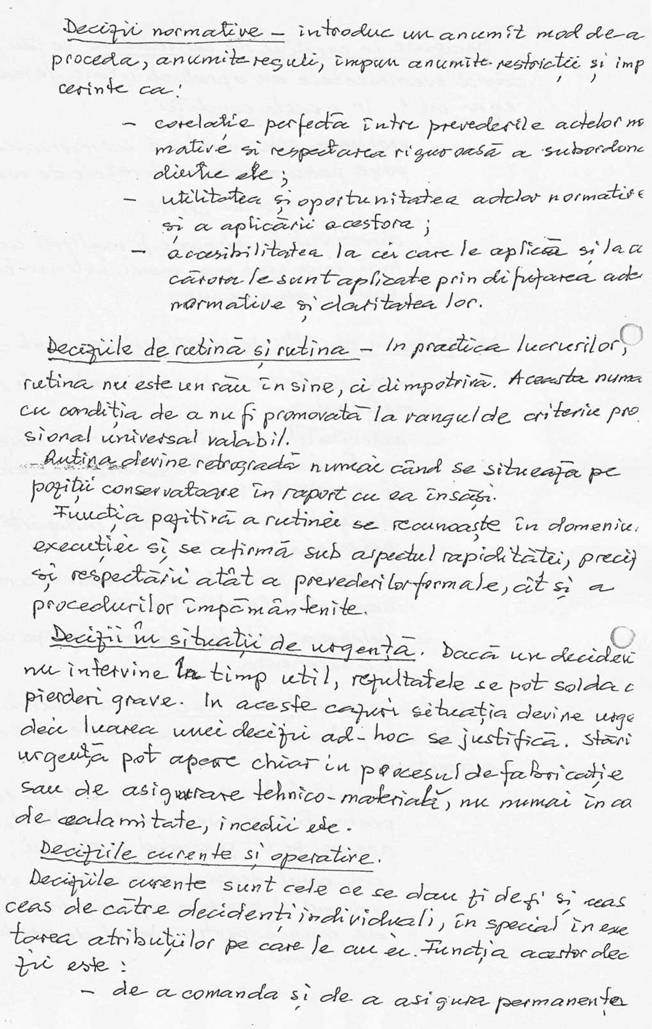 Decizii normative – introduc un anumit mod de a
proceda, anumite reguli, impun anumite restricții și imp
cerințe ca:
– corelație perfectă între prevederile actelor no
mative și respectarea riguroasă a subordonă
dintre ele;
– utilitatea și oportunitatea actelor normative
și a aplicării acestora;
– accesibilitatea la cei care le aplică și la a
cărora le sunt aplicate prin difuzarea acte
normative și claritatea lor.
Deciziile de rutină și rutina – In practica lucrurilor,
rutina nu este un rău în sine, ci dimpotrivă. Aceasta numa
cu condiția de a nu fi promovată la rangul de criteriu pro
sional universal valabil.
Rutina devine retrogradă numai când se situează pe
poziții conservatoare în raport cu ea însăși.
Funcția pozitivă a rutinei se recunoaște în domeniu
execuției și se afirmă sub aspectul rapidității, preciz
și respectării atât a prevederilor formale, cât și a
procedurilor împământenite.
Decizii în situații de urgență. Dacă un decident
nu intervine în timp util, rezultatele se pot solda c
pierderi grave. In aceste cazuri situația devine urge
deci luarea unei decizii ad-hoc se justifică. Stări
urgență pot apare chiar in procesul de fabricație
sau de asigurare tehnico-materială, nu numai în ca
de calamitate, incedii etc.
Deciziile curente si operative.
Deciziile curente sunt cele ce se dau zi de zi și ceas
ceas de către decidenți individuali, în special in exe
tarea atribuțiilor pe care le au ei. Funcția acestor dec
zii este:
– de a comanda și de a asigura permanența